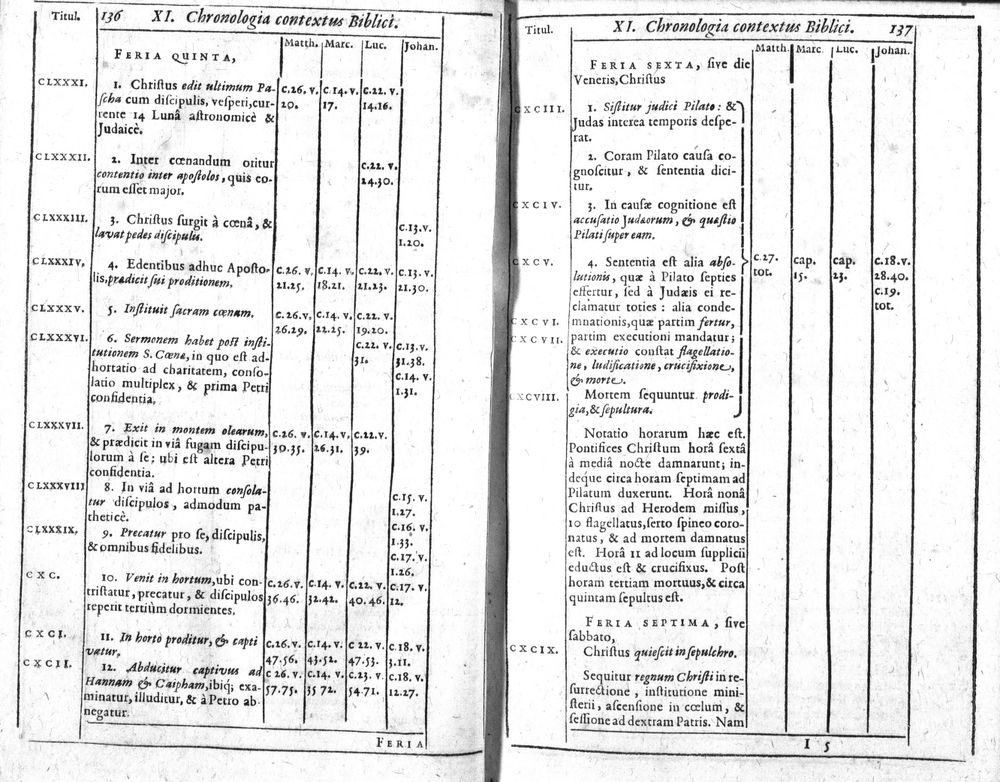 Titul. 136 XI. Chronologia contextus Biblici.
Matth. Marc. Luc. Johan.
FERIA QUINTA,
CLXXXI. 1. Christus edit ultimum Pa- c.26. v. c.14. v. c.22. v.
scha cum discipulis, vesperi, cur- 20. 17. 14.16.
rente 14 Lunâ astronomicè &
Judaicè.
CLXXXII. 2. Inter cœnandum oritur c.22. v.
contentio inter apostolos, quis eo- 24.30.
rum esset major.
CLXXXIII. 3. Christus surgit à cœnâ, & c.13.v.
lavat pedes discipulis. 1.20.
CLXXXIV, 4. Edentibus adhuc Aposto- c.26. v. c.14. v. c.22. v. c.13. v.
lis, prædicit sui proditionem. 21.25. 18.21. 21.23. 21.30.
CLXXXV. 5. Instituit sacram cœnam. c.26. v. c.14. v. c.22. v.
26.29. 22.25. 19.20.
CLXXXVI. 6. Sermonem habet post insti- c.22. v. c.13. v.
tutionem S. Cœnæ, in quo est ad- 31. 31.38.
hortatio ad charitatem, conso- c.14. v.
latio multiplex, & prima Petri 1.31.
confidentia.
CLXXXVII. 7. Exit in montem olearum, c.26. v. c.14. v. c.22.v.
& prædicit in viâ fugam discipu- 30.35. 26.31. 39.
lorum à se; ubi est altera Petri
confidentia.
CLXXXVIII 8. In viâ ad hortum consola- c.15. v.
tur discipulos, admodum pa- 1.27.
theticè.
CLXXXIX. 9. Precatur pro se, discipulis, c.16. v.
& omnibus fidelibus. 1.33.
c.17. v.
1.26.
CXC. 10. Venit in hortum, ubi con- c.26. v. c.14. v. c.22. v. c.17. v.
tristatur, precatur, & discipulos 36.46. 32.42. 40.46. 12.
reperit tertiùm dormientes.
CXCI. 11. In horto proditur, & capti c.26.v. c.14. v. c 22. v. c.18. v.
vatur, 47.56. 43.52. 47.53. 3.11.
CXCII. 12. Abducitur captivus ad c 26. v. c.14. v. c.23. v. c.18. v.
Hannam & Caipham, ibiq; exa- 57.75. 35 72. 54.71. 12.27.
minatur, illuditur, & à Petro ab
negatur.
FERIA
Titul. XI. Chronologia contextus Biblici. 137
Matth. Marc. Luc. Johan.
FERIA SEXTA, sive die
Veneris, Christus
CXCIII. 1. Sistitur judici Pilato: &
Judas interea temporis despe-
rat.
2. Coram Pilato causa co-
gnoscitur, & sententia dici-
tur.
CXCIV. 3. In causæ cognitione est
accusatio Judæorum, & quæstio
Pilati super eam.
CXCV. 4. Sententia est alia abso- c.27. cap. cap. c.18.v.
lutionis, quæ à Pilato septies tot. 15. 23. 28.40.
effertur, sed à Judæis ei re- c.19.
clamatur toties: alia conde- tot.
CXCVI. mnationis, quæ partim fertur,
CXCVII. partim executioni mandatur;
& executio constat flagellatio-
ne, ludificatione, crucifixione,
& morte.
CXCVIII. Mortem sequuntur prodi-
gia, & sepultura.
Notatio horarum hæc est.
Pontifices Christum horâ sextâ
à mediâ nocte damnarunt; in-
deque circa horam septimam ad
Pilatum duxerunt. Horâ nonâ
Christus ad Herodem missus,
10 flagellatus, serto spineo coro-
natus, & ad mortem damnatus
est. Horâ 11 ad locum supplicii
eductus est & crucifixus. Post
horam tertiam mortuus, & circa
quintam sepultus est.
FERIA SEPTIMA, sive
sabbato,
CXCIX. Christus quiescit in sepulchro.
Sequitur regnum Christi in re-
surrectione, institutione mini-
sterii, ascensione in cœlum, &
sessione ad dextram Patris. Nam
I 5